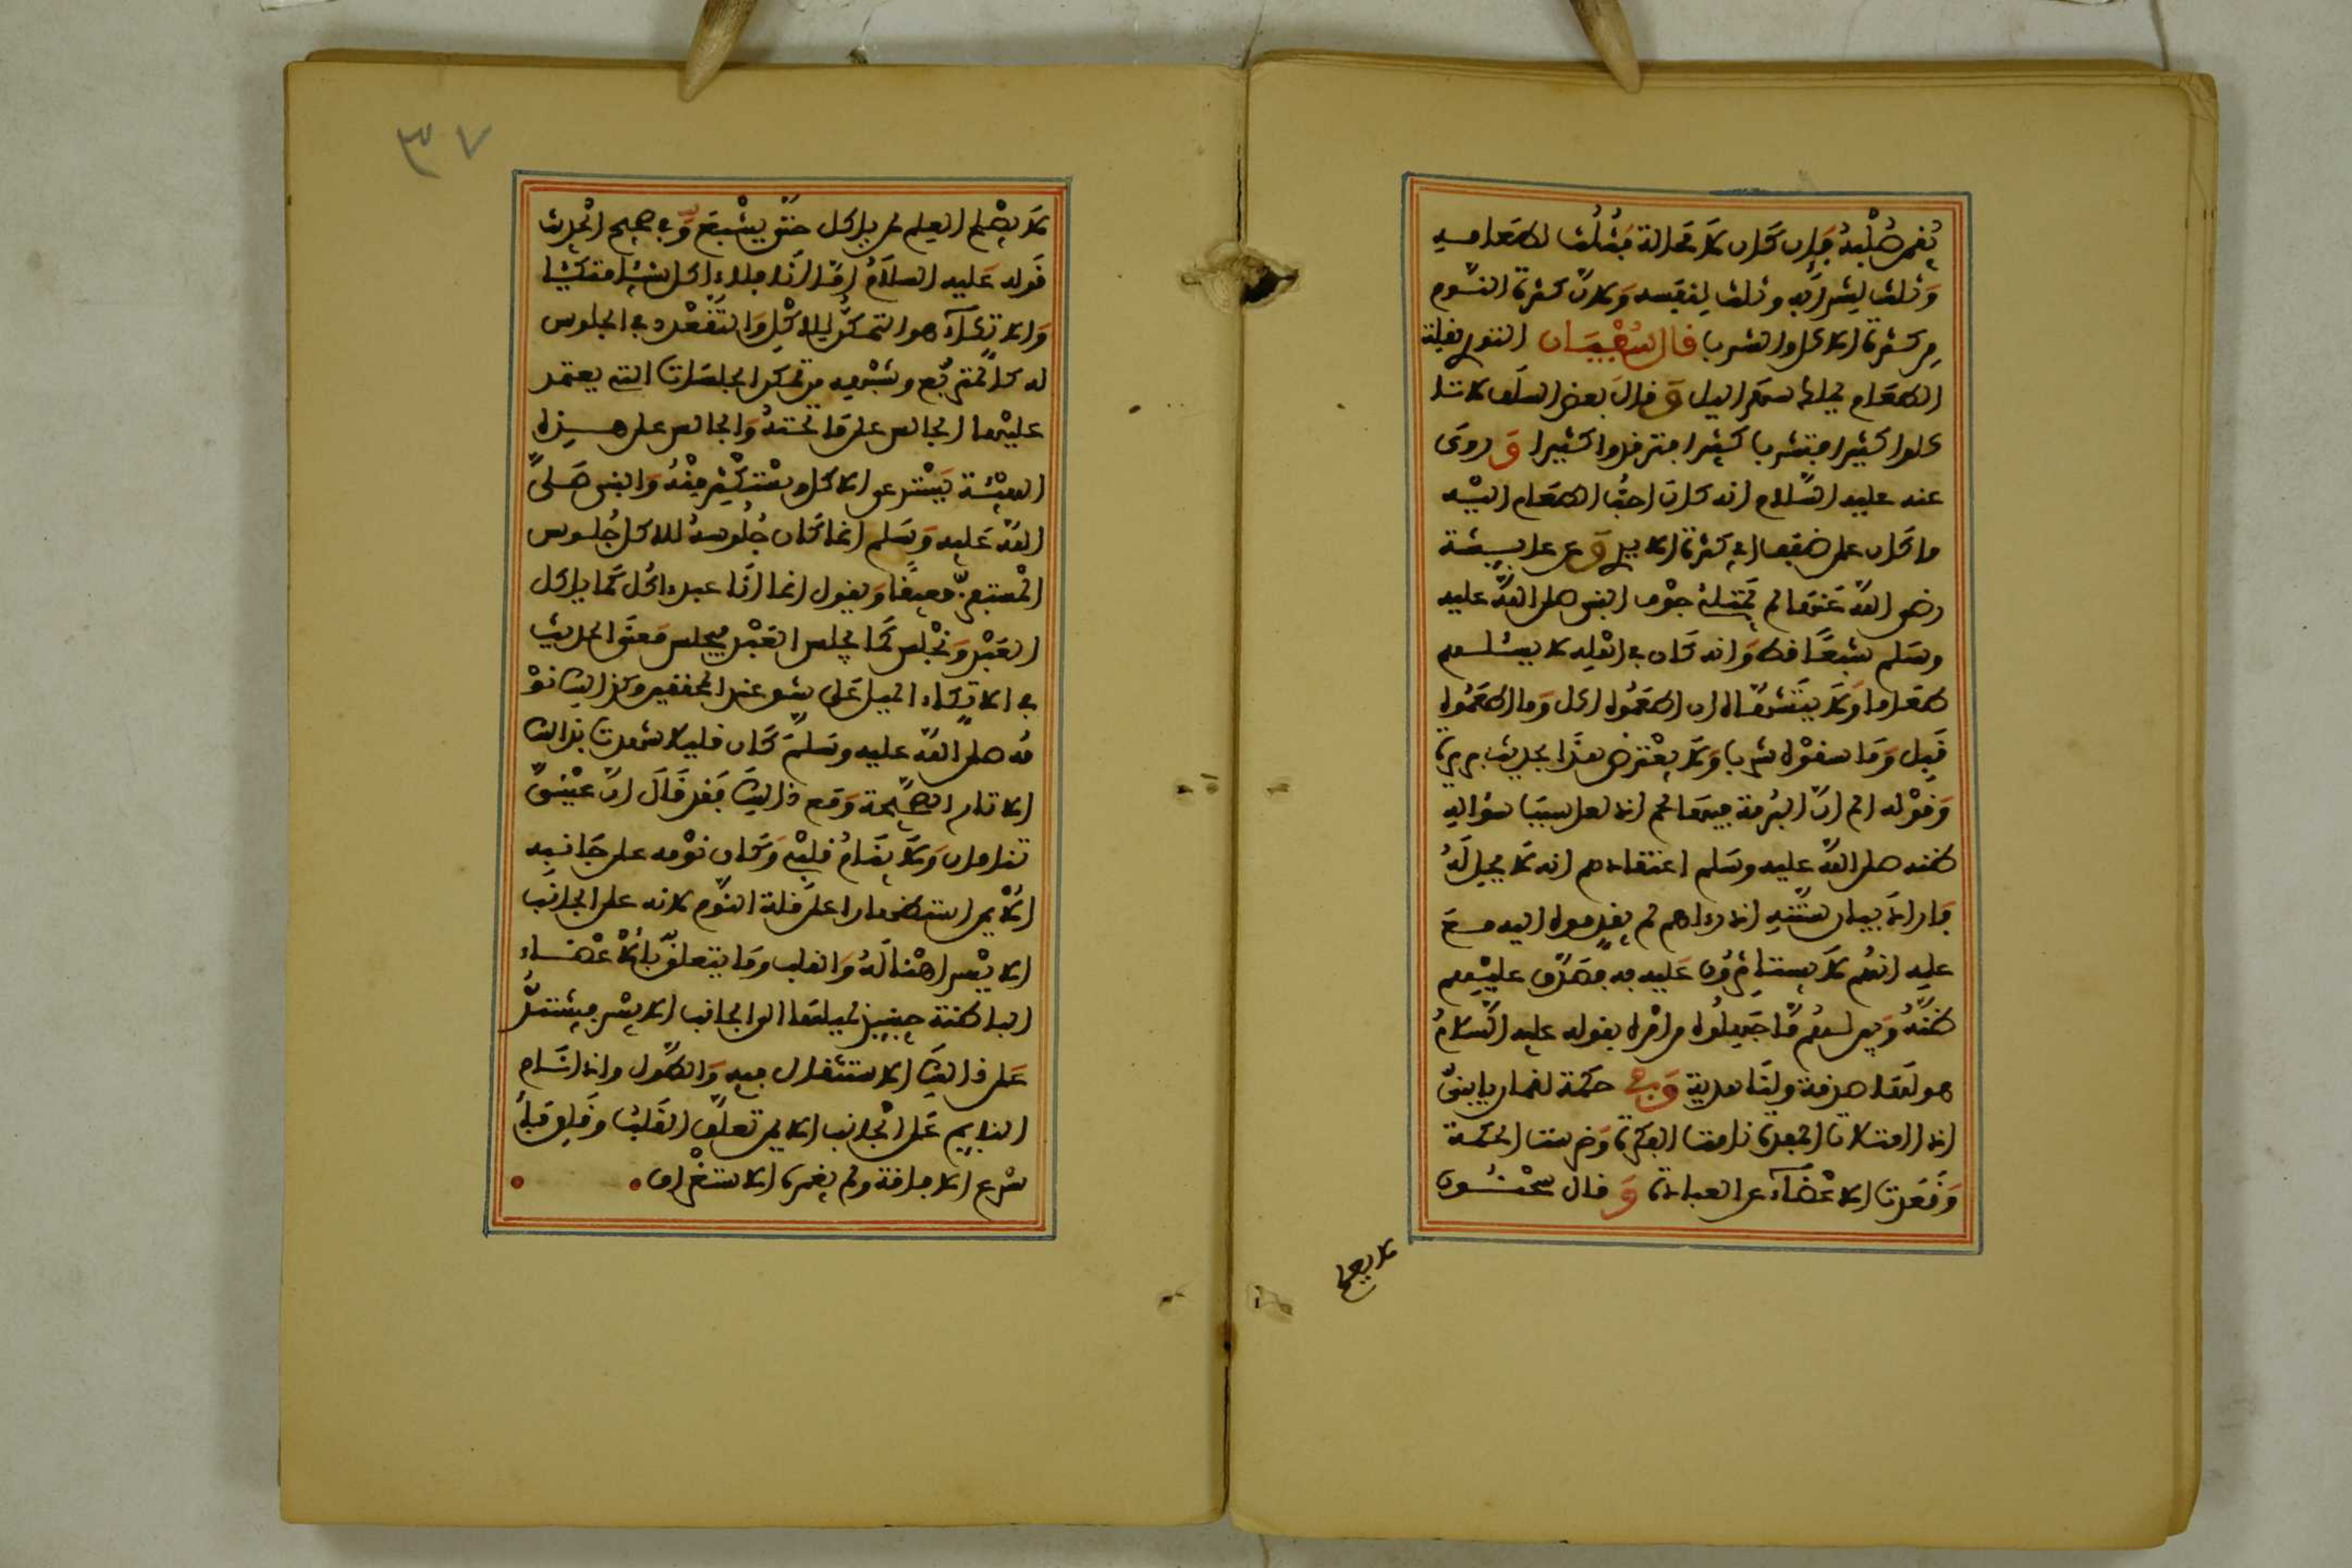 يُقمن صُلْبَهُ فَإِن كَان لاَ مَحالة فَثُلُث لطعامه
وَثلث لِشرابه وثلث لِنفَسه وَلأنّ كثرة النّوم
مِن كثرة الأكل والشرب قال سُفْيَان الثوري بقلة
الطعَام يملك سهر اليل وَ قالَ بعض السلَف لا تا
كلوا كثيرا فتشربوا كثيرا فترقدوا كثيرا وَ روى
عنه عليه السّلام أنه كان أحبُّ الطعَام إليْه
ما كَان على ضفف أي كثرة الأيدي وَ عن عايِشة
رضي اللّه عَنها لم يَمْتَلئ جوْف النبي صلى اللّه عليه
وسَلم شبعًا قط وَأنه كَان في أهْلِه لا يسْئلهم
طعَاما وَلاَ يتَشهّاه إن أطعَمُوه أكل وَما أطعَمُوه
قَبِل وَمَا سقوْه شرب وَلاَ يعْترض هذَا بحديث بريرة
وَقوْله ألم أرَ البُرمة فيهَا لحم إذ لعل سبب سؤاله
ظنه صلى اللّه عليه وسَلم اعتقادهم أنه لاَ يحِل لَهُ
فَأراد بيان سُنَّتِه إذ رءاهم لم يقدموه اليه مع
علمه أنهُم لاَ يستاثرُون عَليه به فصَدَق عليْهم
ظنّهُ وَبين لهُم مَّا جَهِلُوه من أمْره بقوله عليه السّلامُ
هو لَها صدقة ولنَا هدية وَفي حكمة لقمان يابنيّ
إذا امتلأت المعدة نامت الفكرة وَخرست الحكمة
وَقَعدت الأعْضَآء عن العبادة وَ قال سحْنُون
لا يصلح
٣٧
لاَ يصْلح العِلم لمن ياكل حتّى يشْبَع وَ في صحيح الحْديث
قَوله عَليه السلاَمُ أمّا أنَا فلا ءاكل متكئا
وَالاتكآء هو التمكُّن للأكْلِ وَالتَّقَعْدد في الجلوس
له كالْمتربّع وشبْهه من تمكن الجلسَات التي يعتمد
عليْها الجالس على مَا تحْتهُ وَالجالس على هذه
الهيْئة يَسْتدعي الأكل ويسْتكْثِر مِنْهُ وَالنبي صَلى
اللّه عَليه وَسَلم إنما كَان جُلُوسهُ للأكل جُلوس
الْمستوفز مقعِيًا وَيقول إنما أنَا عبد ءاكُل كَما ياكل
العَبْد وَنجْلس كَما يجلس العَبْد وليس مَعنَى الحديث
في الاتكاء الميل عَلى شق عند المحققين وكذالك نوْ
مُه صلى اللّه عليه وسَلمَ كَان قليلا شهدت بذالك
الآثار الصَّحِيحة وَمع ذالك فَقد قَالَ إنّ عيْنيَّ
تنامان وَلاَ ينَامُ قلبي وَكَان نوْمه على جَانبه
الأيمن استظهارا على قلة النّوم لأنه على الجانب
الأيْسر أهْنأ لَهُ وَالقلب وَما يتعلق به من الأعْضاء
الباطنة حِينيذ لميلهَا إلى الجانب الأيسر فيستدعي
عَلى ذالك الاستثقال فيه وَالطُّول وإذا نَام
النايم عَلى الْجانب الأيمن تعلّق القَلبُ وَقَلِق فبا
سْرع الإفاقة ولم يغمره الاستغْراق